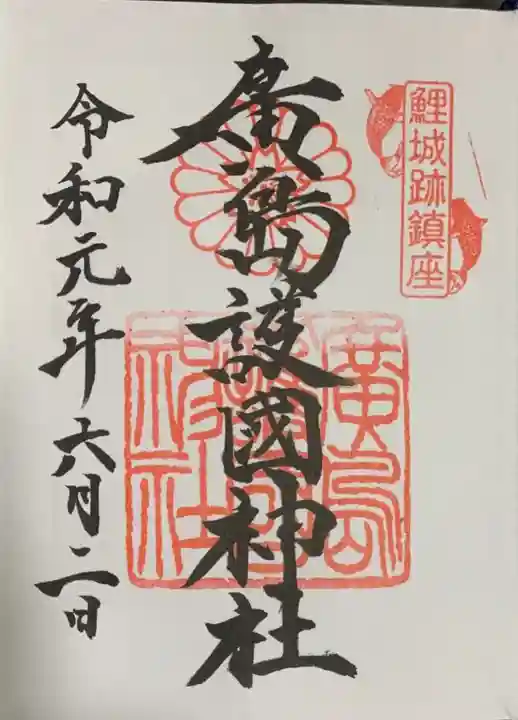 鯉城跡鎮座
廣島護國神社
廣島護國神社
令和元年六月二日